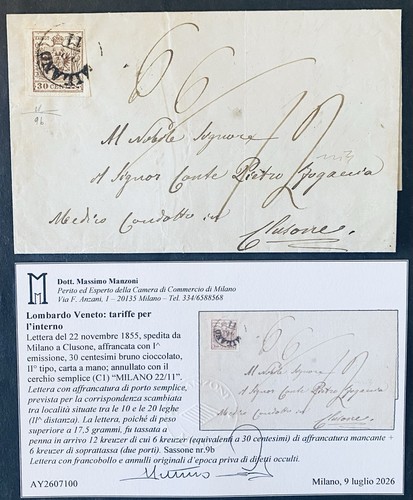 MILANO
30 CENT
6 6
Al Nobile Signore
12
Il Signor Conte Pietro Fogaccia
Medico Condotto in
Clusone.
M
Dott. Massimo Manzoni
Perito ed Esperto della Camera di Commercio di Milano
Via F. Anzani, 1 – 20135 Milano – Tel. 334/6588568
Lombardo Veneto: tariffe per
l'interno
Lettera del 22 novembre 1855, spedita da
Milano a Clusone, affrancata con I^
emissione, 30 centesimi bruno cioccolato,
II° tipo, carta a mano; annullato con il
cerchio semplice (C1) "MILANO 22/11".
Lettera con affrancatura di porto semplice,
prevista per la corrispondenza scambiata
tra località situate tra le 10 e le 20 leghe
(II^ distanza). La lettera, poiché di peso
superiore a 17,5 grammi, fu tassata a
penna in arrivo 12 kreuzer di cui 6 kreuzer (equivalenti a 30 centesimi) di affrancatura mancante +
6 kreuzer di soprattassa (due porti). Sassone nr.9b
Lettera con francobollo e annulli originali d'epoca priva di difetti occulti.
AY2607100
Milano, 9 luglio 2026